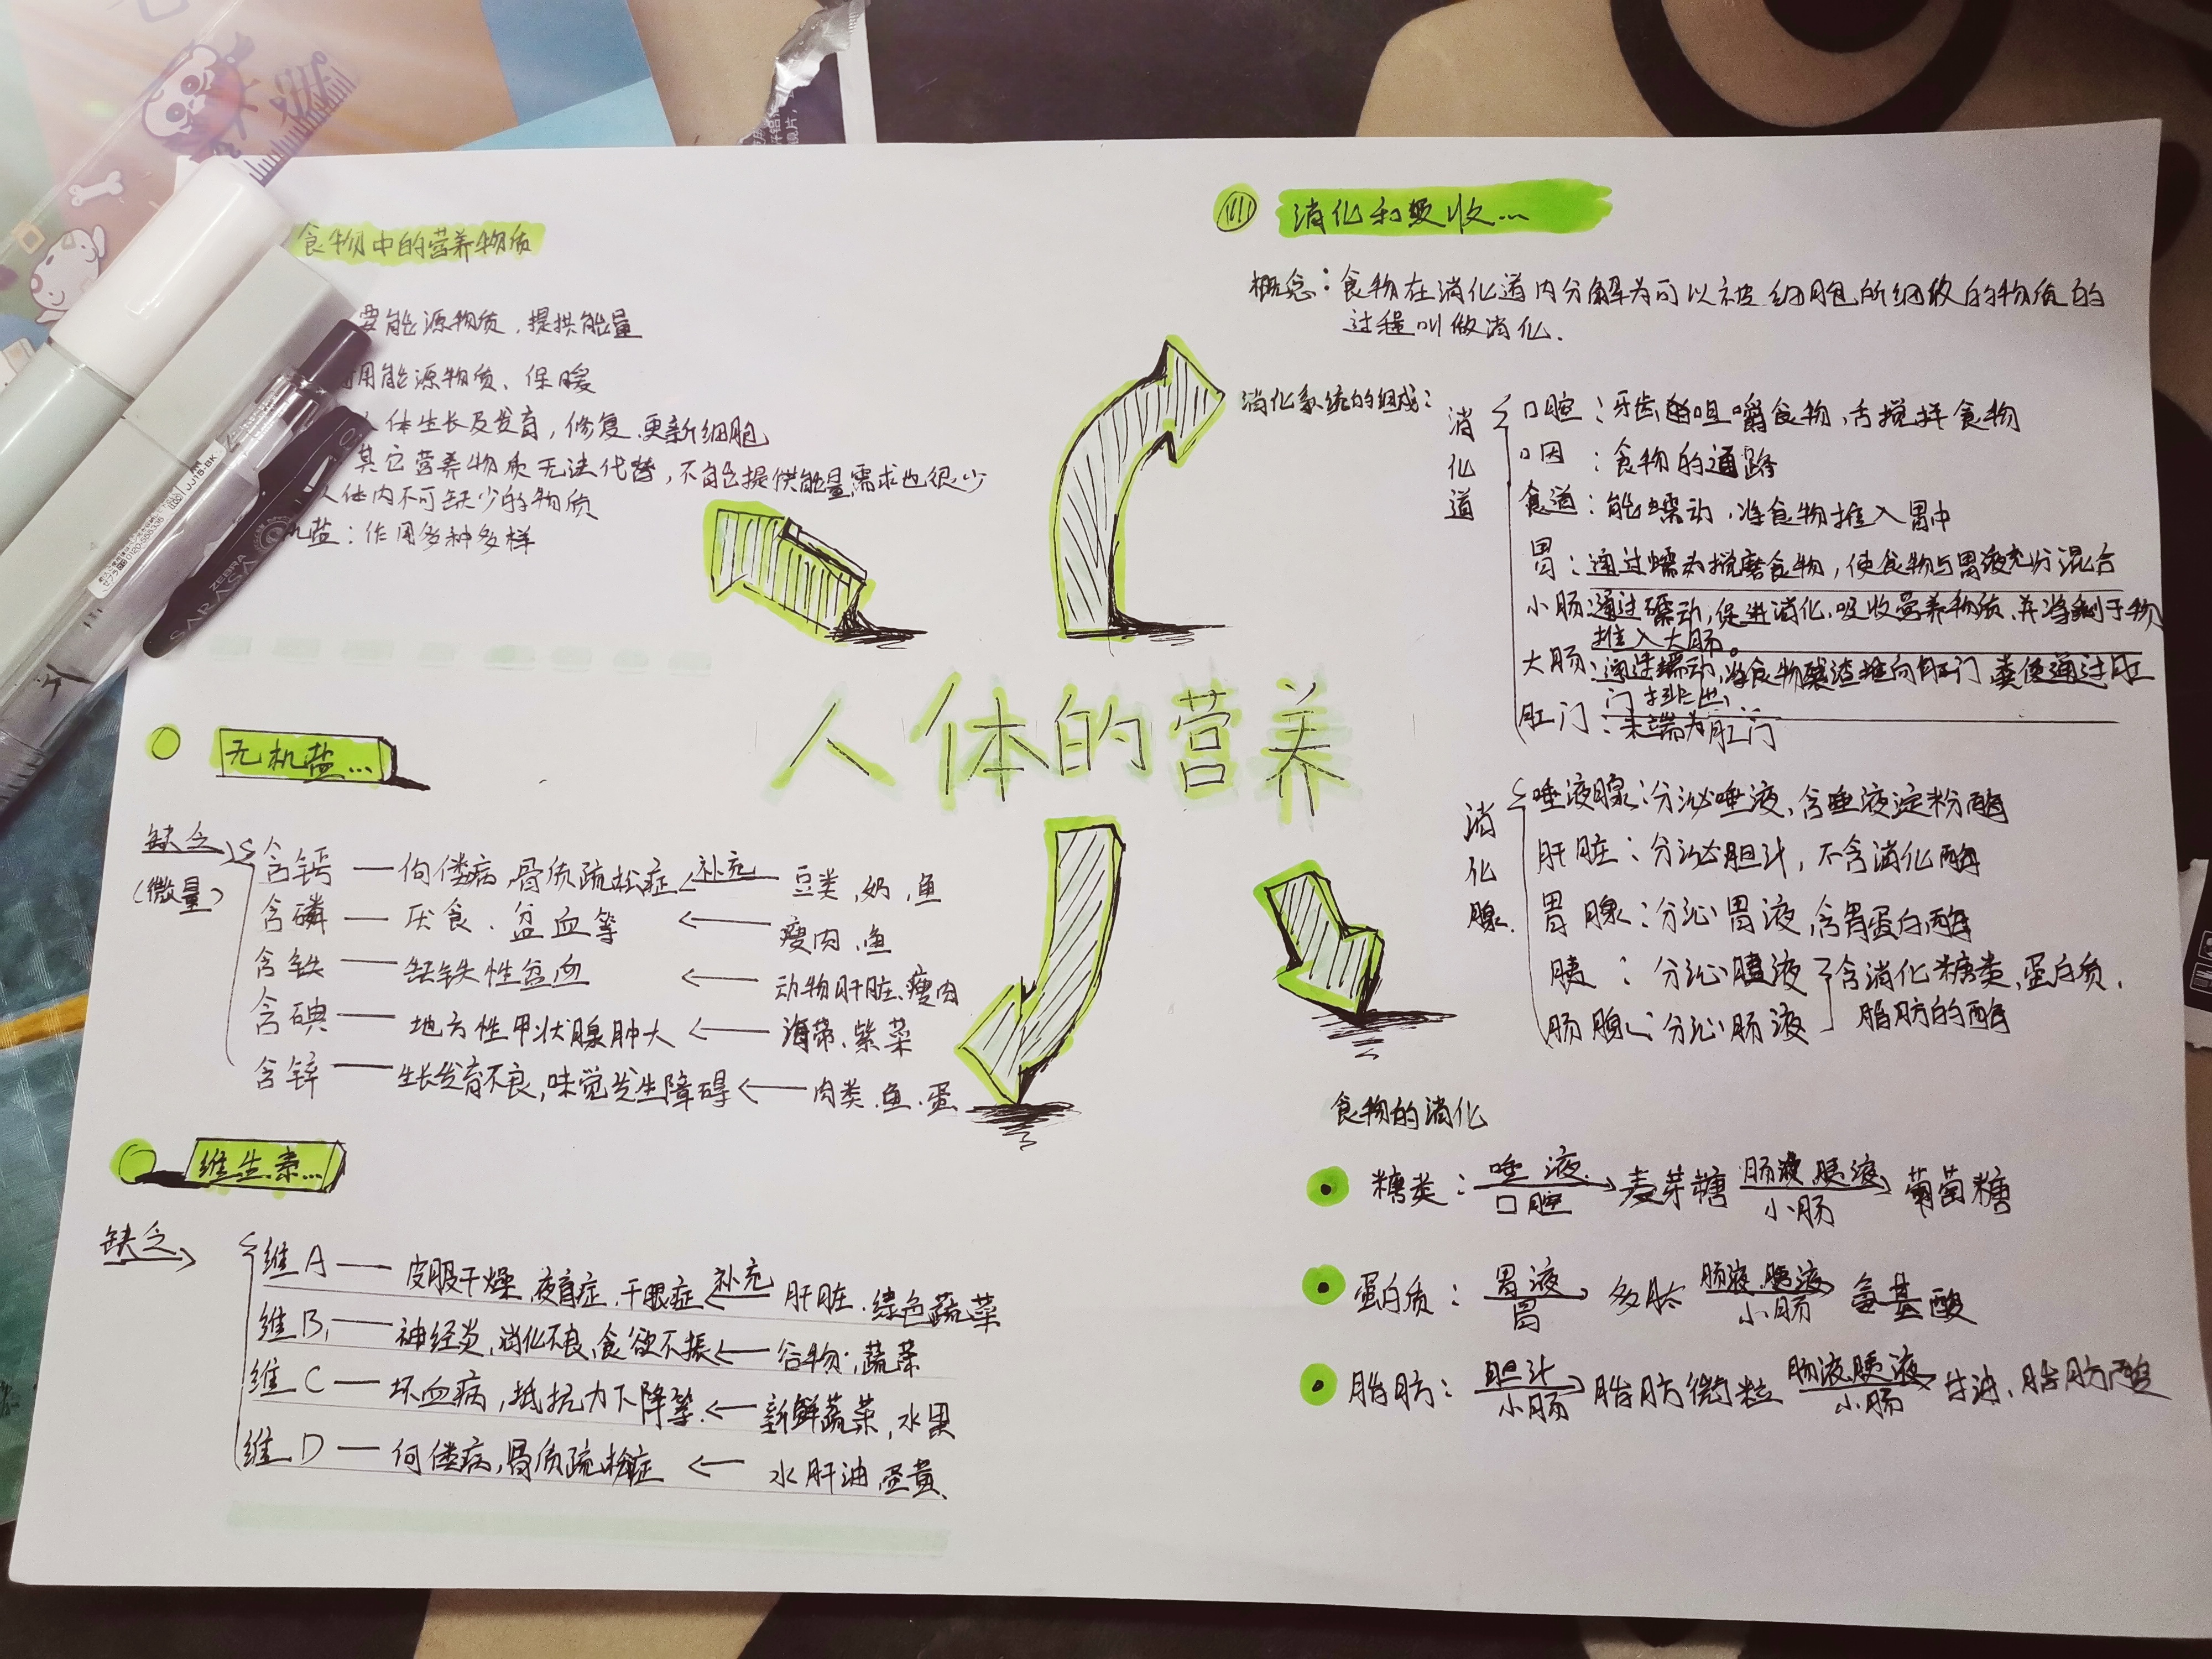 食物中的营养物质
要能源物质，提供能量
用能源物质、保暖
人体生长及发育，修复、更新细胞
其它营养物质无法代替，不能提供能量，需求也很少
人体内不可缺少的物质
机盐：作用多种多样
JJ15-BK
ZEBRA
SARASA
无机盐...
缺乏
(微量)
含钙 — 佝偻病，骨质疏松症 ← 补充 豆类，奶，鱼
含磷 — 厌食、贫血等 ← 瘦肉、鱼
含铁 — 缺铁性贫血 ← 动物肝脏、瘦肉
含碘 — 地方性甲状腺肿大 ← 海带、紫菜
含锌 — 生长发育不良，味觉发生障碍 ← 肉类、鱼、蛋
维生素...
缺乏→
维A — 皮服干燥，夜盲症，干眼症 ← 补充 肝脏、绿色蔬菜
维B₁ — 神经炎，消化不良，食欲不振 ← 谷物、蔬菜
维C — 坏血病，抵抗力下降等 ← 新鲜蔬菜，水果
维D — 佝偻病，骨质疏松症 ← 水肝油，蛋黄、
人体的营养
消化和吸收...
概念：食物在消化道内分解为可以被细胞所细收的物质的
过程叫做消化.
消化系统的组成：
消化道
口腔：牙齿咀嚼食物，舌搅拌食物
口因：食物的通路
食道：能蠕动，将食物推入胃中
胃：通过蠕动搅磨食物，使食物与胃液充分混合
小肠：通过蠕动，促进消化、吸收营养物质、并将剩于物
推入大肠。
大肠：通过蠕动，将食物残渣推向肛门，粪便通过肛
门排出.
肛门：末端为肛门
消化腺.
唾液腺：分泌唾液，含唾液淀粉酶
肝脏：分泌胆汁，不含消化酶
胃腺：分泌胃液，含胃蛋白酶
胰：分泌胰液
肠腺：分泌肠液
含消化糖类，蛋白质，
脂肪的酶
食物的消化
糖类：唾液 口腔 → 麦芽糖 肠液 胰液 小肠 → 葡萄糖
蛋白质：胃液 胃 → 多肽 肠液 胰液 小肠 → 氨基酸
脂肪：胆汁 小肠 → 脂肪微粒 肠液胰液 小肠 → 甘油、脂肪酸